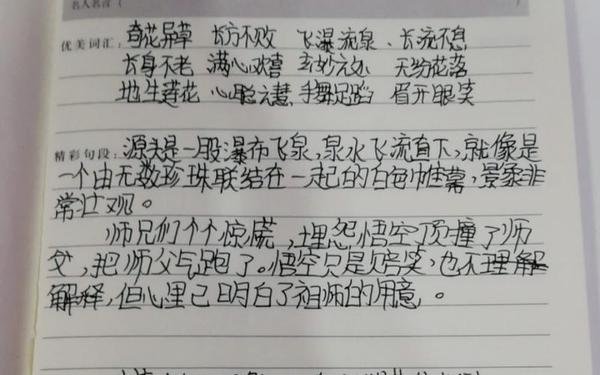 名人名言（
优美词汇：奇花异草 长方不败 飞瀑流泉、长流不息
长身不老 满心欢喜 玄妙之处 天纷花落
地生莲花 心聪之慧、手舞足蹈 眉开眼笑
精彩句段：源头是一股瀑布飞泉，泉水飞流直下，就像是
一个由无数珍珠联结在一起的白色帷幕，景象非
常壮观。
师兄们个个惊慌，埋怨悟空顶撞了师
父，把师父气跑了。悟空只是陪笑，也不理解
解释，但心里已明白了祖师的用意。